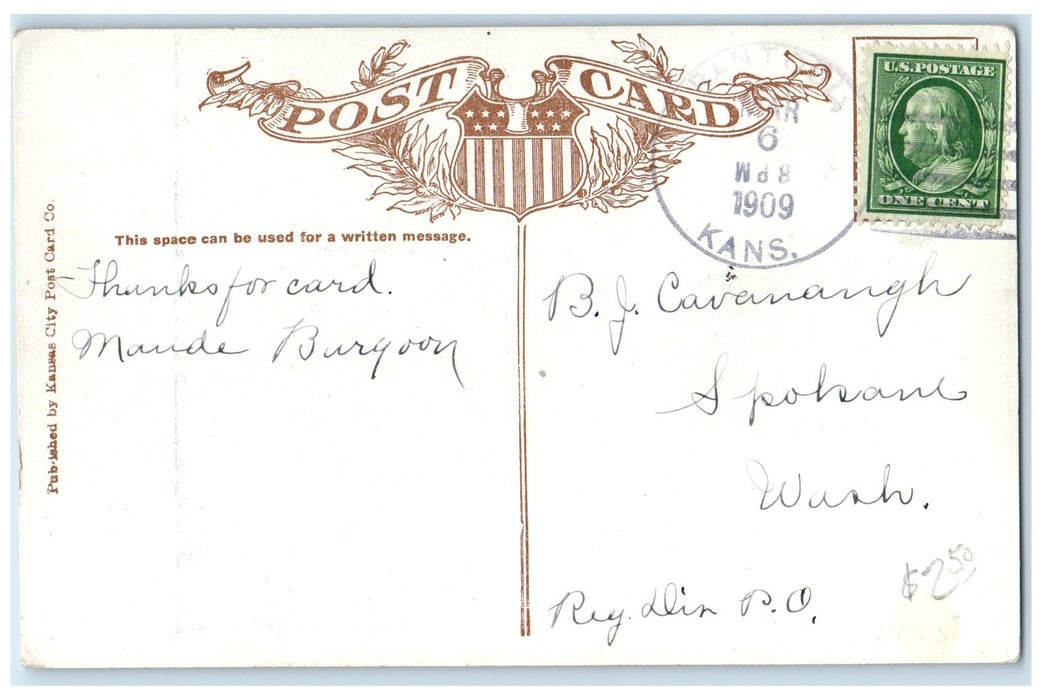 POST CARD
MAR
6
1909
KANS.
U.S. POSTAGE
ONE CENT
Published by Kansas City Post Card Co.
This space can be used for a written message.
Thanks for card.
Maude Burgoon
B. J. Cavanaugh
Spokane
Wash.
Reg. Div P.O.
$2.50